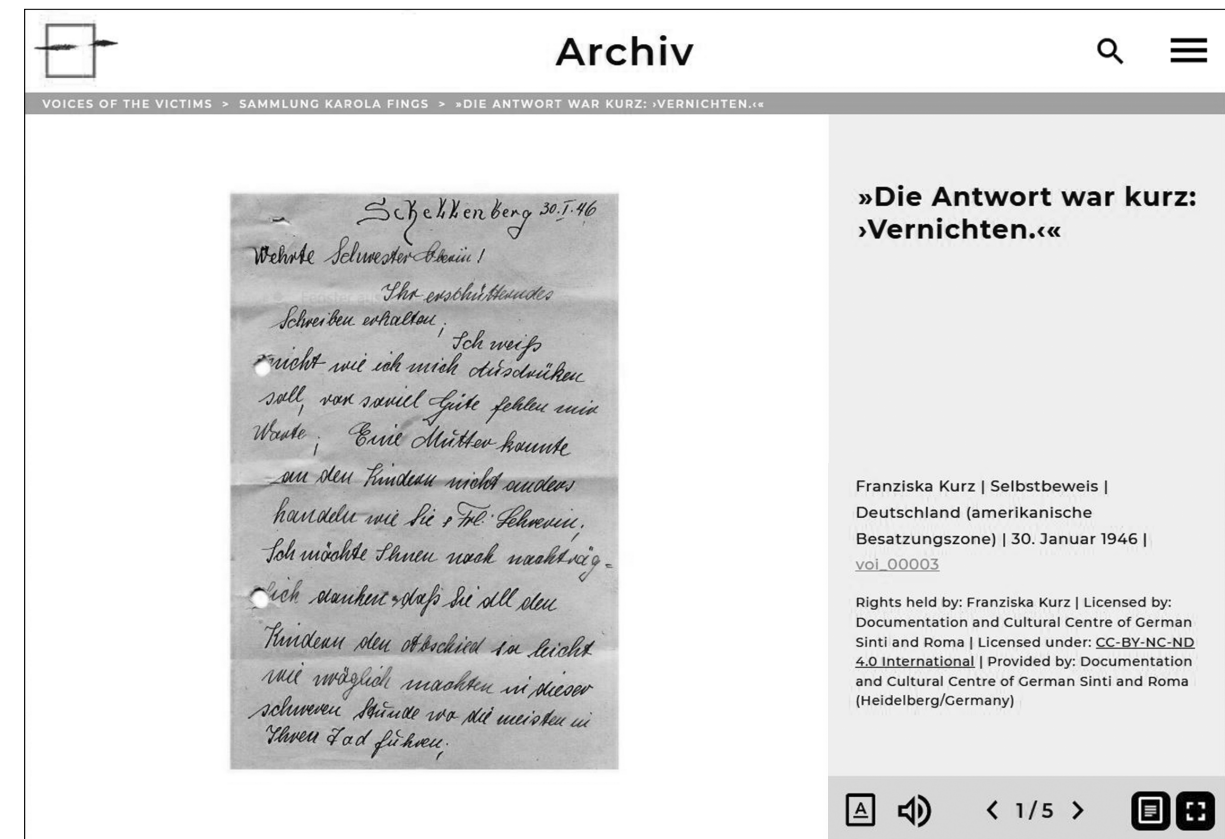 Archiv
VOICES OF THE VICTIMS > SAMMLUNG KAROLA FINGS > »DIE ANTWORT WAR KURZ: ›VERNICHTEN.‹«
Schellenberg 30.I.46
Wehrte Schwester Oberin!
Ihr erschütterndes
Schreiben erhalten;
Ich weiß
nicht wie ich mich Ausdrüken
soll, vor soviel Güte fehlen mir
Worte; Eine Mutter konnte
an den Kindern nicht anders
handeln wie Sie & Frl. Lehrerin;
Ich möchte Ihnen noch nachträg=
lich danken, daß Sie all den
Kindern den Abschied so leicht
wie möglich machten in dieser
schweren Stunde wo die meisten in
Ihren Tod führen;
»Die Antwort war kurz:
›Vernichten.‹«
Franziska Kurz | Selbstbeweis |
Deutschland (amerikanische
Besatzungszone) | 30. Januar 1946 |
voi_00003
Rights held by: Franziska Kurz | Licensed by:
Documentation and Cultural Centre of German
Sinti and Roma | Licensed under: CC-BY-NC-ND
4.0 International | Provided by: Documentation
and Cultural Centre of German Sinti and Roma
(Heidelberg/Germany)
A
1/5